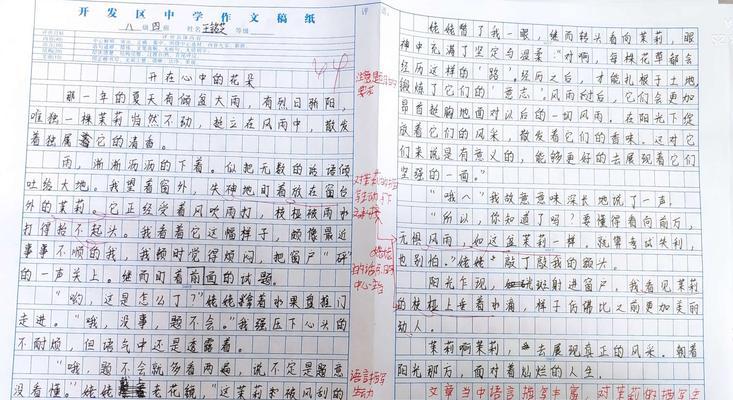 开发区中学作文稿纸
八级四班 姓名王铭芝 等级
开在心中的花朵
那一年的夏天有倾盆大雨,有烈日骄阳,
唯独一株茉莉怡然不动,挺立在风雨中,散发
着独属它的清香。
雨,淅淅沥沥的下着。似把无数的话语倾
吐给大地。我望着窗外,失神地盯着放在窗台
外的茉莉。它正经受着风吹雨打,枝桠被雨水
打得抬不起头。我看着它这幅样子,颇像最近
事事不顺的我,我顿时觉得烦闷,把窗户“砰”
的一声关上。继而盯着前面的试题。
“哟,这是怎么了?”姥姥拿着水果盘推门
走进。“哦,没事,题不会。”我强压下心头的
不耐烦,但语气中还是透露着。
“哦,题不会就多看两遍,说不定是题意
没看懂。”姥姥老花镜,“这茉莉都被风刮的
姥姥瞥了我一眼,继而转头看向茉莉,眼
神中充满了坚定与温柔:“对啊,每棵花草都会
经历这样的‘路’。经历之后,才能扎根于土地,
锻炼了它们的‘意志’。风雨过后,它们会更加
昂首挺胸地面对以后的一切风雨。在阳光下绽
放着它们的风采,散发着它们的香味。这对它
们来说是有意义的,能够更好的去展现着它们
坚强的一面。”
“哦~”我故意意味深长地说了一声。
“所以,你知道了吗?要懂得看向前方,
无惧风雨,如这盆茉莉一样。就算考试失利,
也别怕。”姥姥敲了敲我的额头。
阳光乍现,斑射进窗户,我看见茉莉
的枝桠上垂着水滴,样子仿佛比之前更加美丽
动人。
茉莉啊茉莉,去展现真正的风采。朝着
阳光那方,面对着灿烂的人生。
文章当中语言描写丰富,对茉莉的描写
注意题目的要求
语言描写生动